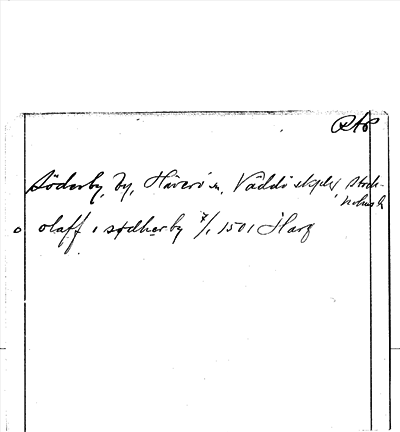 RAP
Söderby, by, Häverö sn, Väddö skplg, Stock-
holms l
o olaff i sødherby 7/1 1501 Harg